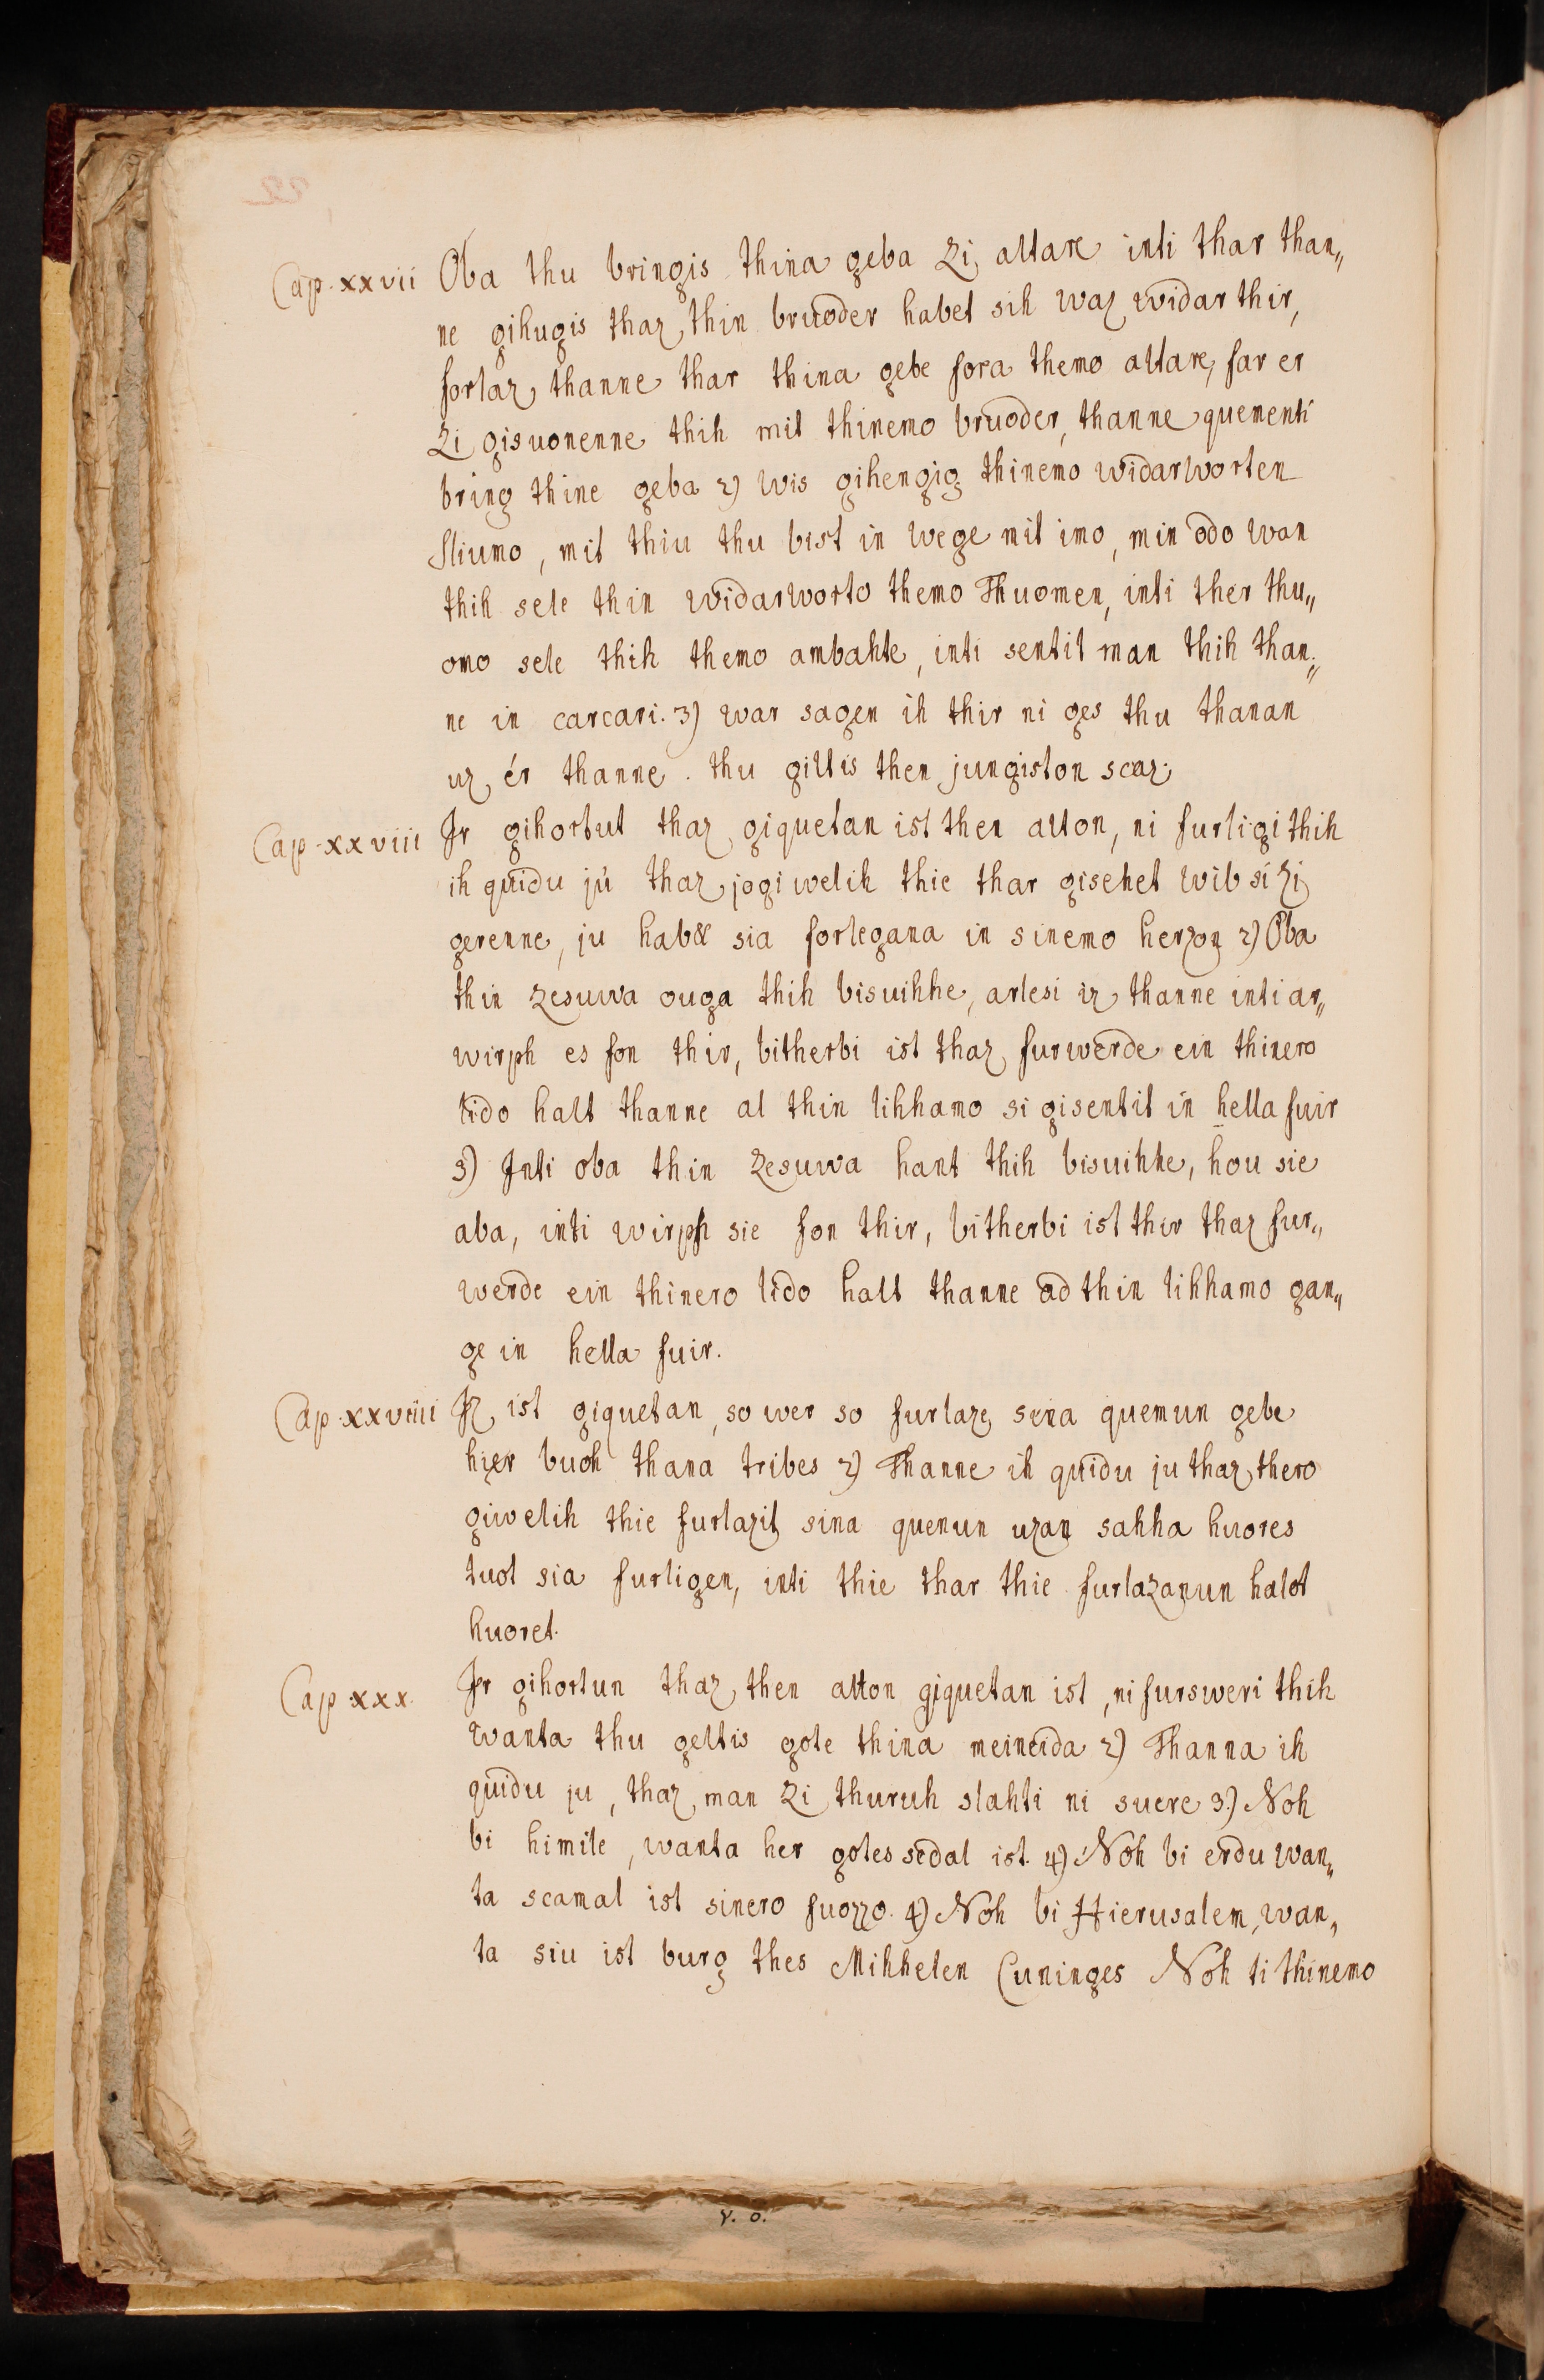 Cap. xxvii Oba thu bringis thina geba Zi altare inti thar than„
ne gihugis thaz thin bruoder habet sih waz widar thir,
forlaz thanne thar thina gebe fora themo altare, far er
Zi gisuonenne thih mit thinemo bruoder, thanne quementi
bring thine geba 2) Wis gihengig thinemo widarworten
sliumo, mit thiu thu bist in wege mit imo, min odo wan
thih sele thin widarworto themo Thuomen, inti ther thu„
omo sele thih themo ambahte, inti sentit man thih than„
ne in carcari. 3) war sagen ih thir ni ges thu thanan
uz ér thanne. thu giltis then jungiston scaz.
Cap. xxviii Ir gihortut thaz giquetan ist then alton, ni furligi thih
ih quidu jú thaz jogiwelih thie thar gisehet wib si zi
gerenne, ju hab& sia forlegana in sinemo herzon 2) Oba
thin Zesuwa ouga thih bisuihhe, arlesi iz thanne inti ar„
wirph es fon thir, bitherbi ist thaz furwerde ein thinero
lido halt thanne al thin lihhamo si gisentit in hella fuir
3) Inti oba thin Zesuwa hant thih bisuihhe, hou sie
aba, inti wirph sie fon thir, bitherbi ist thir thaz fur„
werde ein thinero lido halt thanne ad thin lihhamo gan„
ge in hella fuir.
Cap. xxviiii Iz ist giquetan, so wer so furlaze sina quemun gebe
hier buoh thana tribes 2) Thanne ih quidu ju thaz thero
giwelih thie furlazit sina quenun uzan sahha huores
tuot sia furligen, inti thie thar thie furlazanun halot
huoret.
Cap xxx. Ir gihortun thaz then alton giquetan ist, ni fursweri thih
wanta thu geltis gote thina meineida 2) Thanna ih
quidu ju, thaz man Zi thuruh slahti ni suere 3.) Noh
bi himile, wanta her gotes sedal ist. 4) Noh bi erdu wan„
ta scamal ist sinero fuozzo. 4) Noh bi Hierusalem, wan„
ta siu ist burg thes Mihhelen Cuninges Noh ti thinemo
v. o.